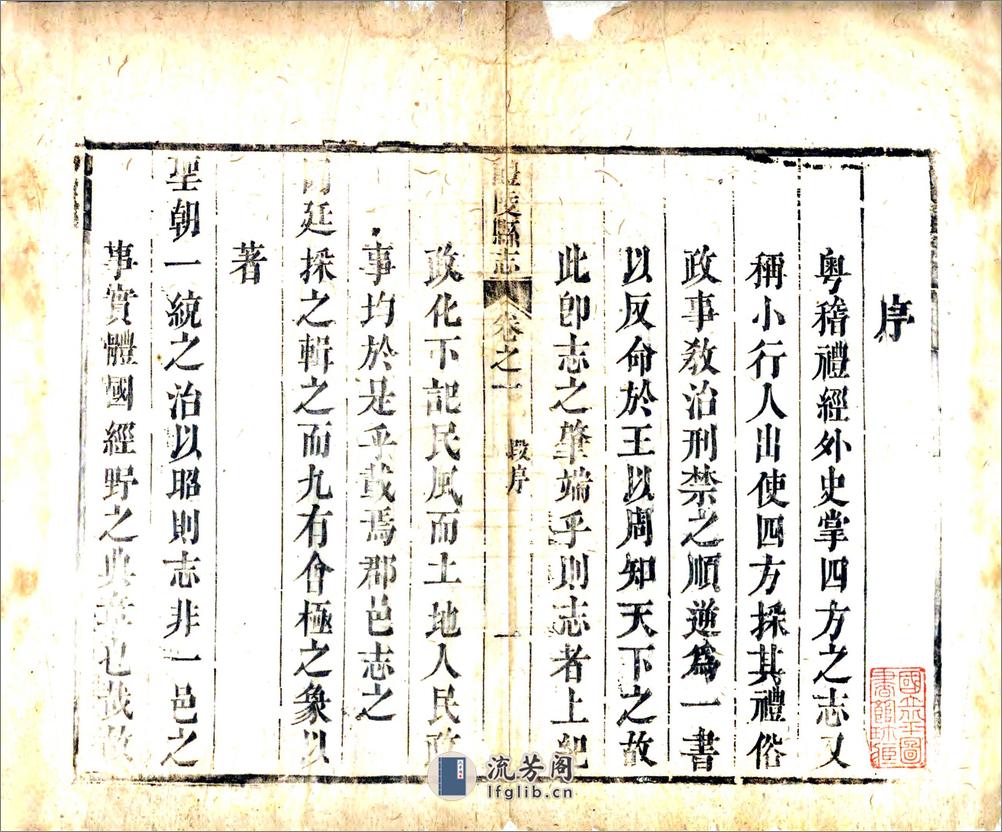 序
粤稽禮經外史掌四方之志又
稱小行人出使四方採其禮俗
政事敎治刑禁之順逆爲一書
以反命於王以周知天下之故
此卽志之肇端乎則志者上紀
陵縣志 卷之一 段序 一
政化下記民風而土地人民政
事均於是乎載焉郡邑志之
廷採之輯之而九有會極之象以
著
聖朝一統之治以昭則志非一邑之
事實體國經野之典章也哉故
流芳阁
lfglib.cn